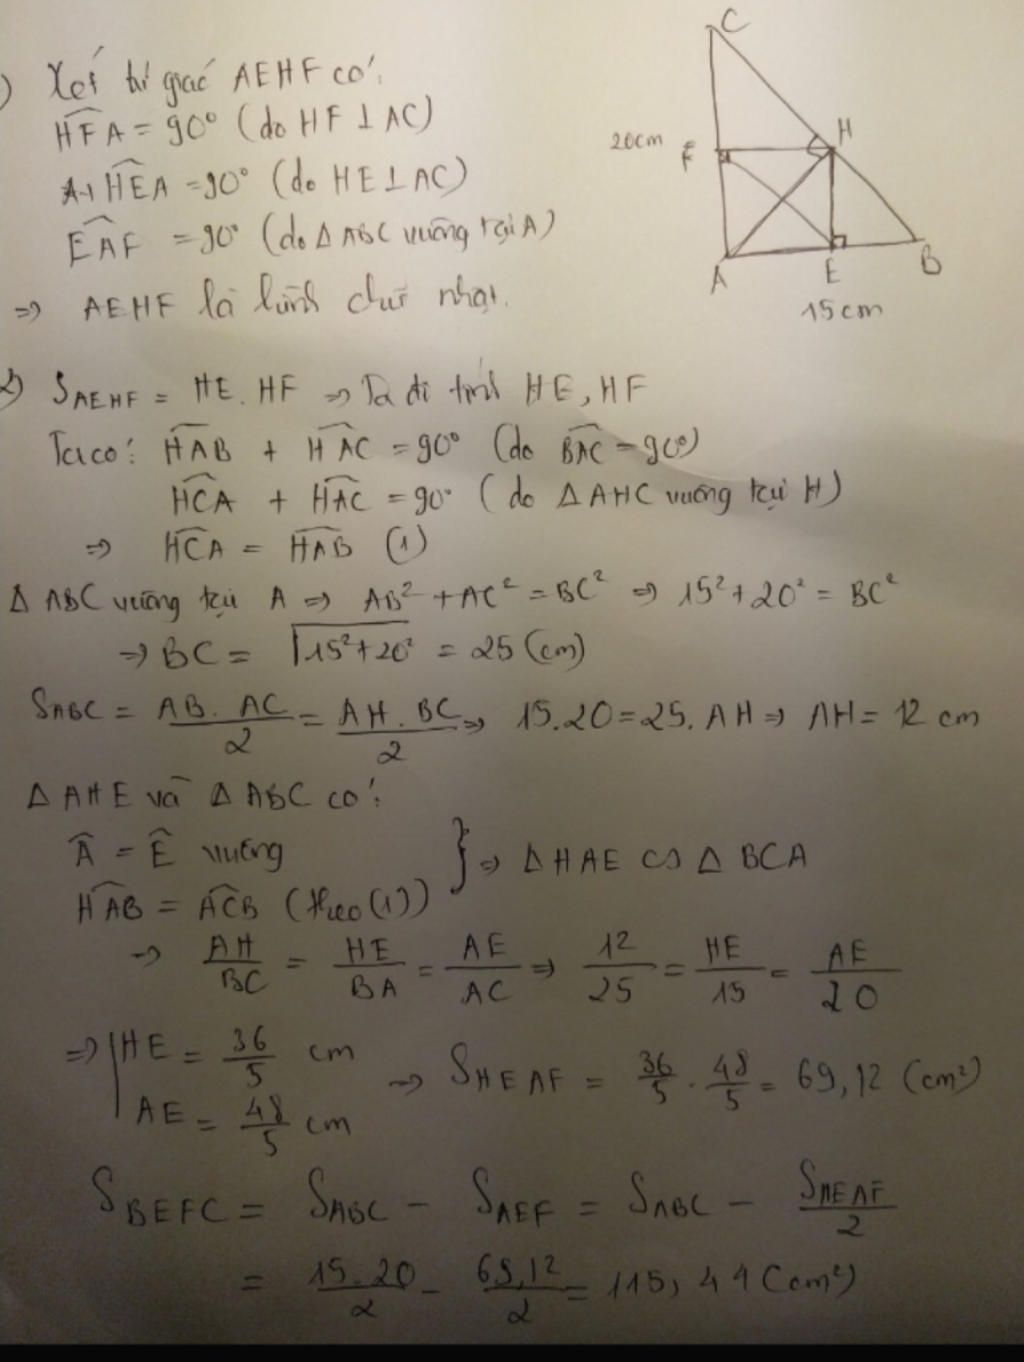 ) Xét tứ giác AEHF có:
HFA = 90° (do HF ⊥ AC)
HEA = 90° (do HE ⊥ AC)
EAF = 90° (do Δ ABC vuông tại A)
⇒ AEHF là hình chữ nhật.
C
H
20cm F
A E B
15cm
2) S_AEHF = HE. HF ⇒ Ta đi tính HE, HF
Ta có: HAB + HAC = 90° (do BAC = 90°)
HCA + HAC = 90° (do Δ AHC vuông tại H)
⇒ HCA = HAB (1)
Δ ABC vuông tại A ⇒ AB² + AC² = BC² ⇒ 15² + 20² = BC²
⇒ BC = √15²+20² = 25 (cm)
S_ABC = AB. AC / 2 = AH. BC / 2 ⇒ 15.20 = 25. AH ⇒ AH = 12 cm
Δ AHE và Δ ABC có:
Â = Ê vuông
HAB = ACB (theo (1)) } ⇒ Δ HAE ∽ Δ BCA
⇒ AH/BC = HE/BA = AE/AC ⇒ 12/25 = HE/15 = AE/20
⇒ HE = 36/5 cm
AE = 48/5 cm
⇒ S_HEAF = 36/5 . 48/5 = 69,12 (cm²)
S_BEFC = S_ABC - S_AEF = S_ABC - S_HEAF / 2
= 15.20 / 2 - 69,12 / 2 = 115,44 (cm²)